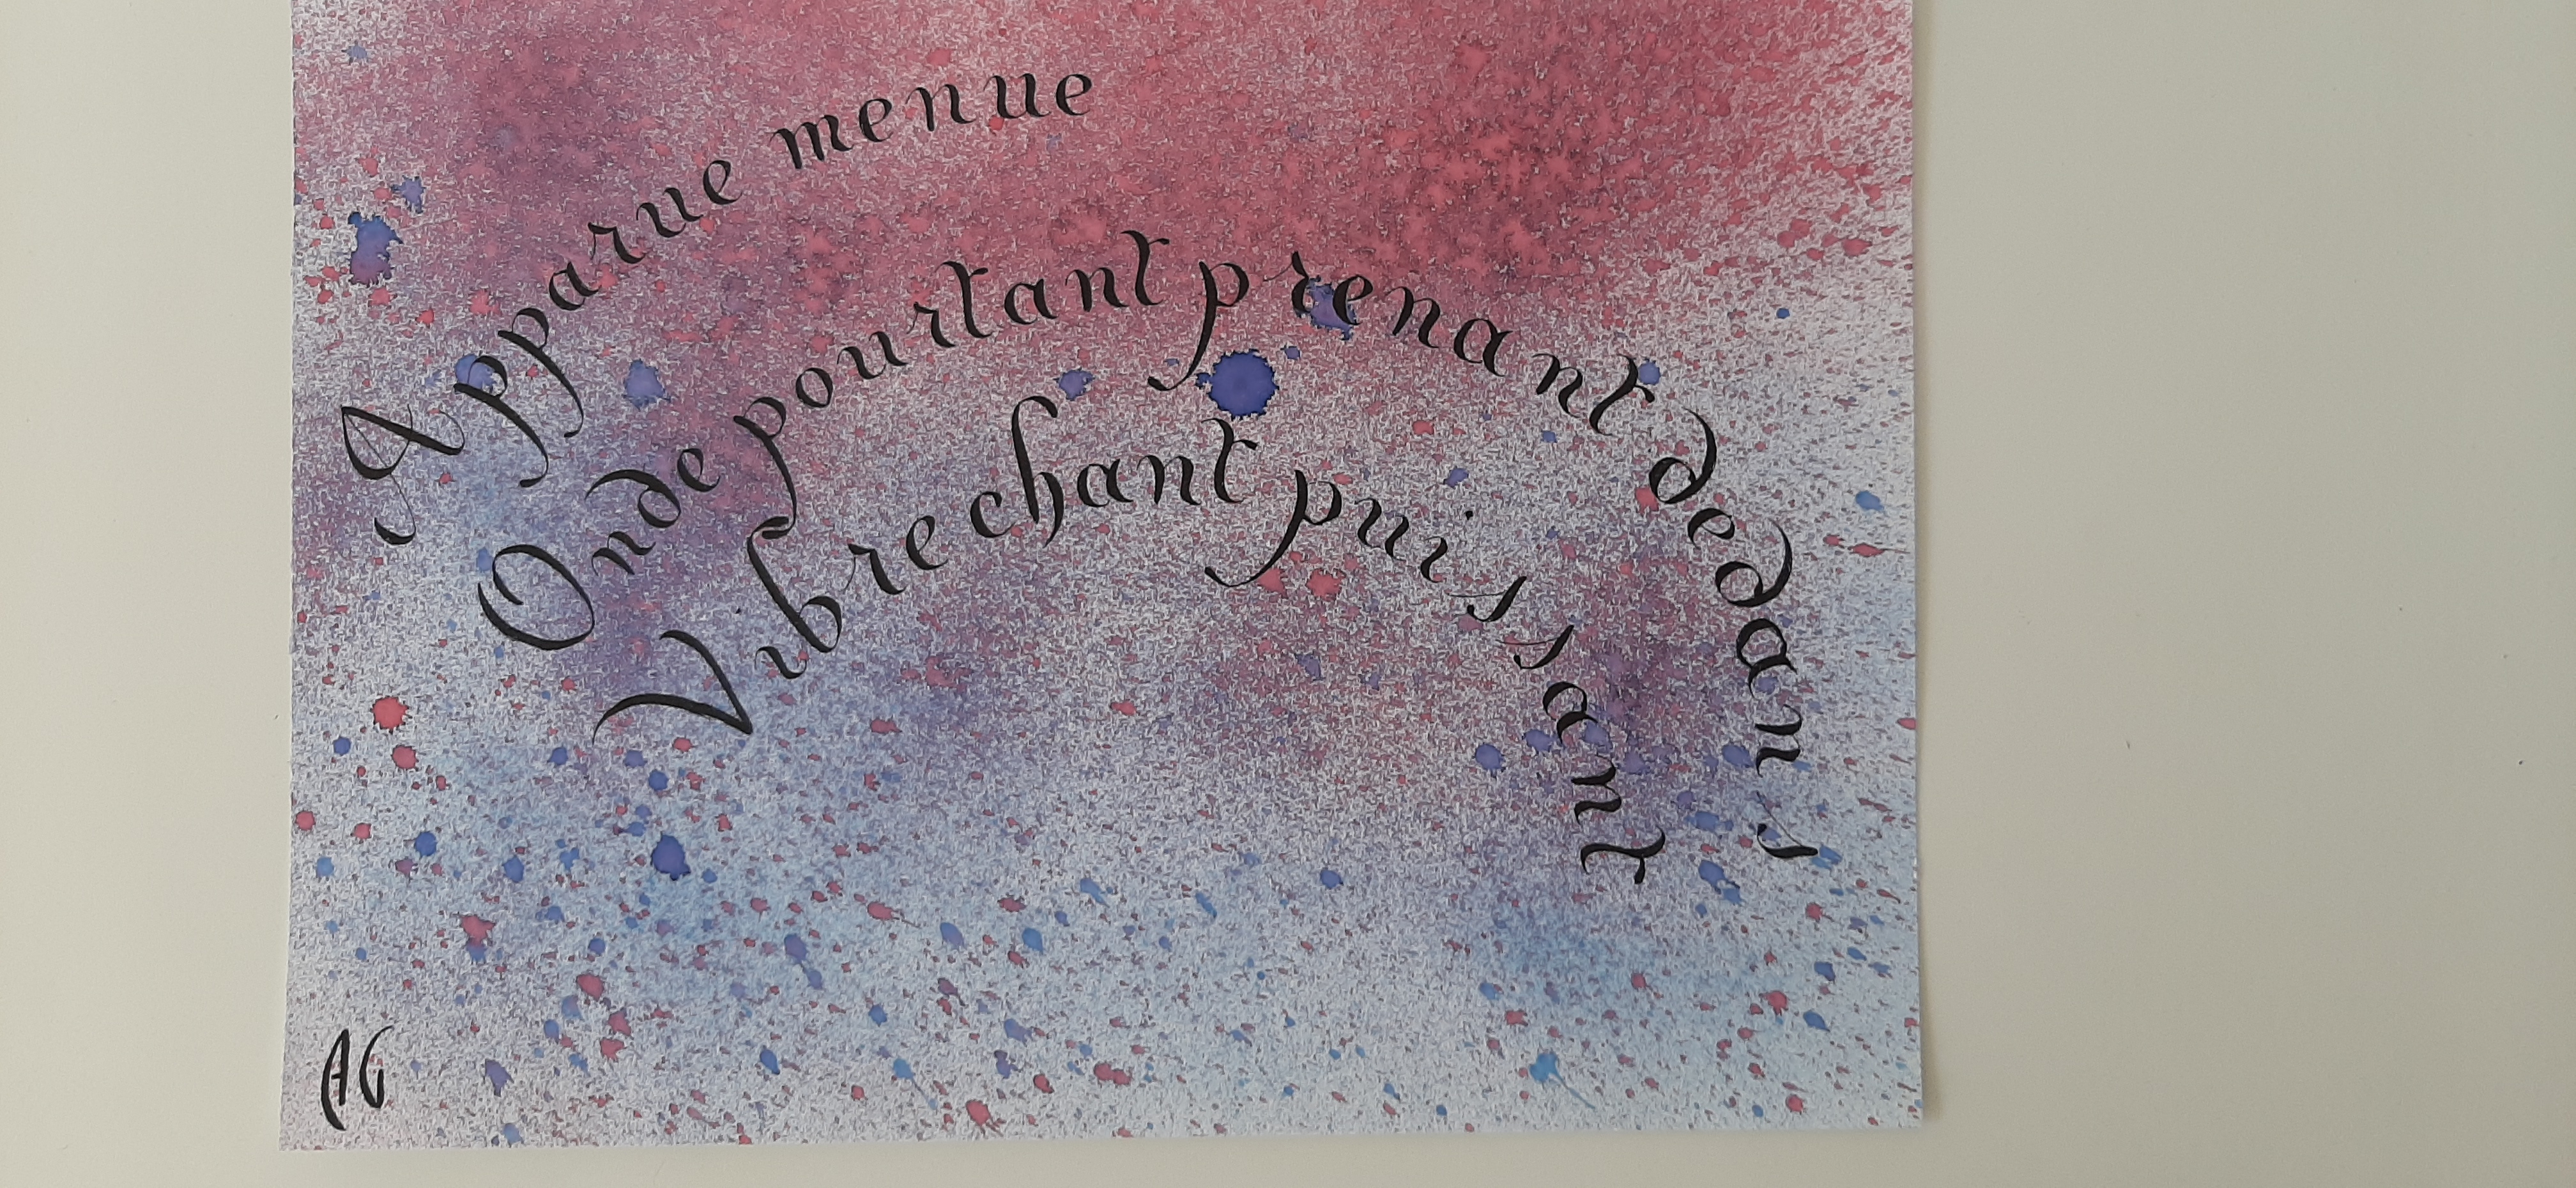 Apparue menue
Onde pourtant prenant dedans
Vibre chant puissant
AG